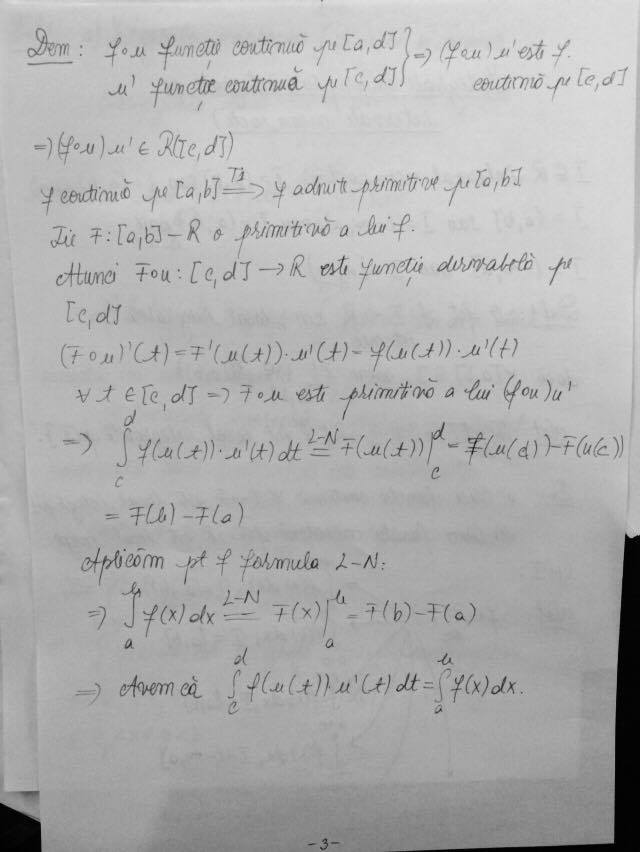 Dem: f∘u funcție continuă pe [a,d] } => (f∘u) u' este f.
u' funcție continuă pe [c,d] } continuă pe [c,d]
=> (f∘u) u' ∈ R([c,d])
f continuă pe [a,b] => f admite primitive pe [a,b]
Fie F: [a,b] – R o primitivă a lui f.
Atunci F∘u : [c,d] → R este funcție derivabilă pe
[c,d]
(F∘u)'(t) = F'(u(t))·u'(t) = f(u(t))·u'(t)
∀ t ∈ [c,d] => F∘u este primitivă a lui (f∘u) u'
=> ∫_c^d f(u(t))·u'(t) dt =^{L-N} F(u(t)) |_c^d = F(u(d)) - F(u(c))
= F(b) - F(a)
Aplicăm pt f formula L-N:
=> ∫_a^b f(x) dx =^{L-N} F(x) |_a^b = F(b) - F(a)
=> Avem că ∫_c^d f(u(t))·u'(t) dt = ∫_a^b f(x) dx.
-3-